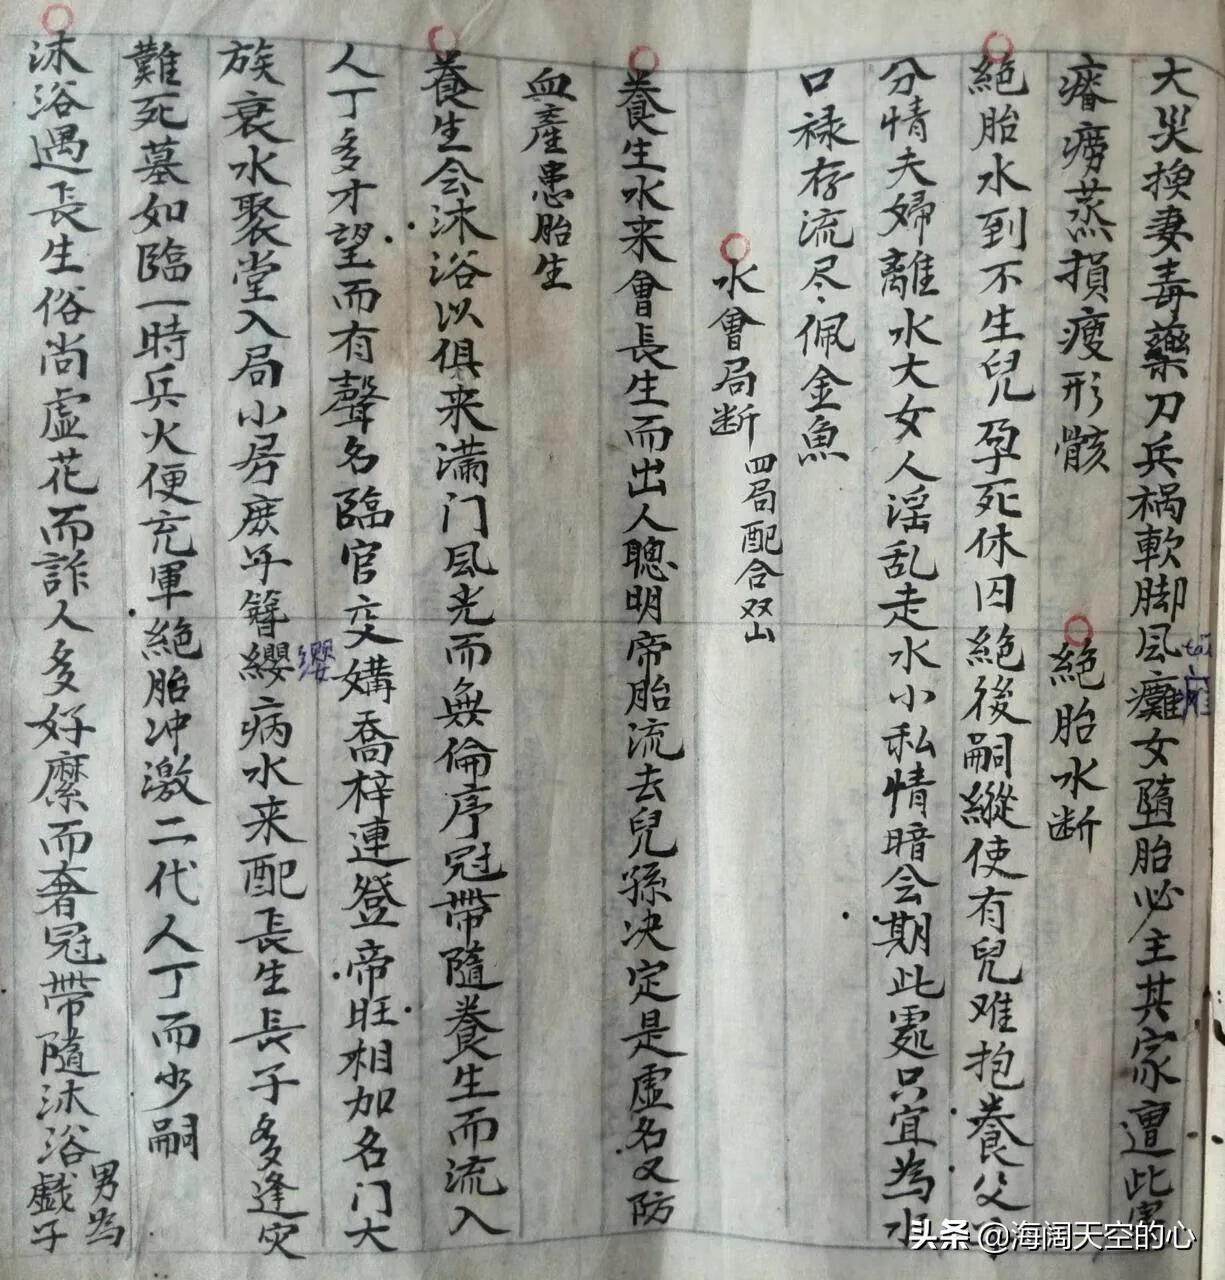 大災換妻毒藥刀兵禍軟脚風癱女墮胎必主其家遭此
瘠癆蒸損瘦形骸
絕胎水断
絕胎水到不生兒孕死休囚絕後嗣縱使有兒难抱養父
分情夫婦離水大女人淫乱走水小私情暗会期此處只宜為水
口禄存流尽佩金魚
水會局断 四局配合双山
養生水来會長生而出人聰明帝胎流去兒孫决定是虛名又防
血産患胎生
養生会沐浴以俱来满门風光而無倫序冠帶隨養生而流入
人丁多才望而有聲名臨官交媾喬梓連登帝旺相加名门大
族衰水聚堂入局小房庶年簪纓病水来配長生長子多逢灾
纓
難死墓如臨一時兵火便充軍絕胎冲激二代人丁而少嗣
沐浴遇長生俗尚虛花而詐人多好縻而奢冠帶隨沐浴男為戲子
头条 @海阔天空的心